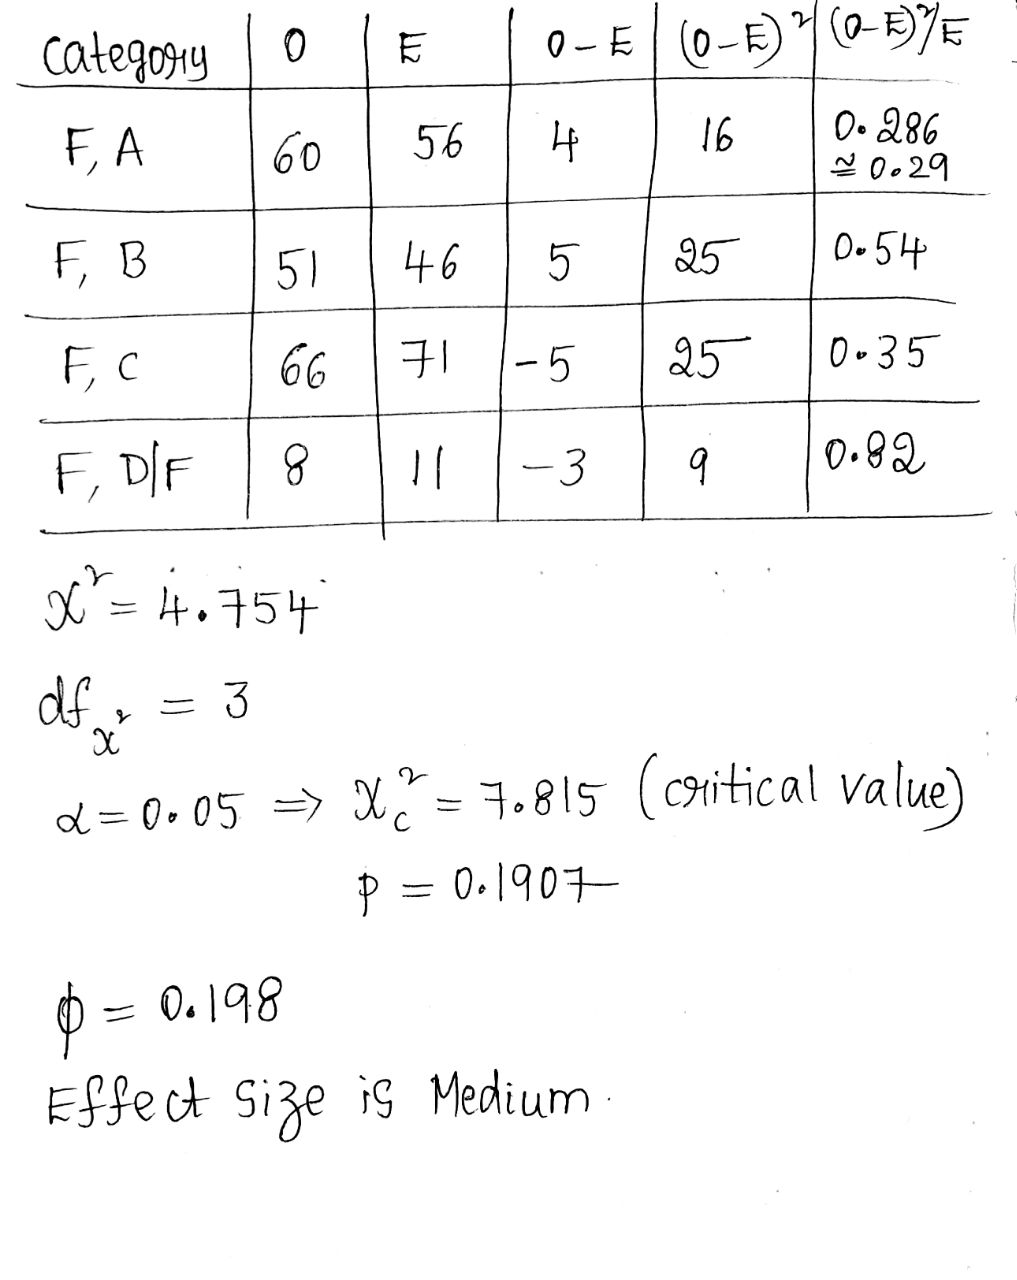 Category O E O-E (O-E)² (O-E)²/E
F, A 60 56 4 16 0.286
≅ 0.29
F, B 51 46 5 25 0.54
F, C 66 71 -5 25 0.35
F, D/F 8 11 -3 9 0.82
x² = 4.754
df x² = 3
α = 0.05 ⇒ x²c = 7.815 (critical value)
p = 0.1907
ϕ = 0.198
Effect size is Medium.